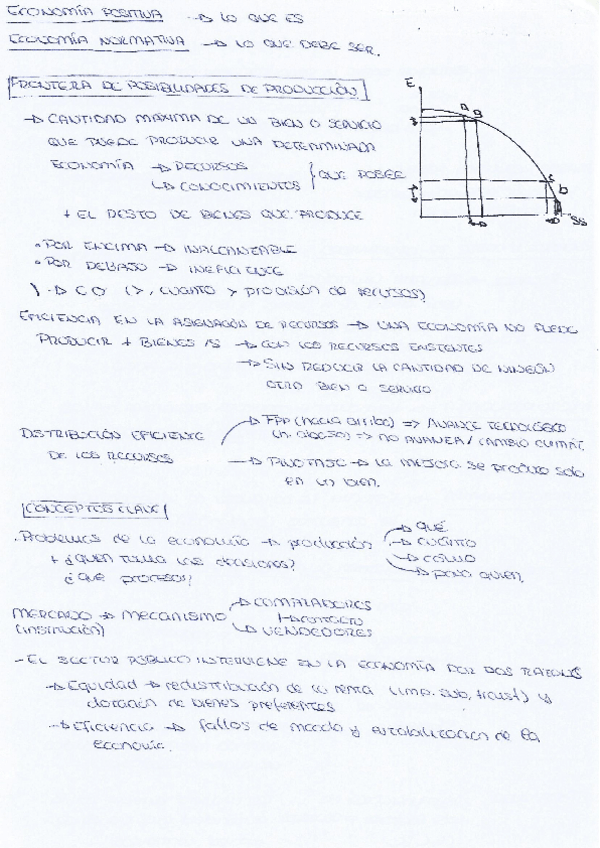 ECONOMÍA POSITIVA → LO QUE ES
ECONOMÍA NORMATIVA → LO QUE DEBE SER.
FRONTERA DE POSIBILIDADES DE PRODUCCIÓN
→ CANTIDAD MÁXIMA DE UN BIEN O SERVICIO
QUE PUEDE PRODUCIR UNA DETERMINADA
ECONOMÍA → RECURSOS
↳ CONOCIMIENTOS } QUE POSEE
+ EL RESTO DE BIENES QUE PRODUCE
E
A B
C
D
• POR ENCIMA → INALCANZABLE
• POR DEBAJO → INEFICIENTE
→ CO (>, cuanto > producción de recursos)
EFICIENCIA EN LA ASIGNACIÓN DE RECURSOS → UNA ECONOMÍA NO PUEDE
PRODUCIR + BIENES /S → CON LOS RECURSOS EXISTENTES
→ SIN REDUCIR LA CANTIDAD DE NINGÚN
OTRO BIEN O SERVICIO
DISTRIBUCIÓN EFICIENTE
DE LOS RECURSOS
→ FPP (hacia arriba) => AVANCE TECNOLÓGICO
(h. abajo) => NO AVANZA / CAMBIO CLIMÁT.
→ PIVOTAJE → la mejora se produce solo
en un bien.
CONCEPTOS CLAVE
. Problemas de la economía → producción
→ QUÉ
→ CUÁNTO
→ CÓMO
→ para quien
+ ¿QUIEN TOMA LAS DECISIONES?
¿QUÉ PROCESOS?
MERCADO → MECANISMO
(INSTITUCIÓN)
→ COMPRADORES
↳ CONTACTO
↳ VENDEDORES
- EL SECTOR PÚBLICO INTERVIENE EN LA ECONOMÍA POR DOS RAZONES
→ Equidad → redistribución de la renta (imp. sub, transf) y
de bienes preferentes
→ Eficiencia → fallos de mercado y estabilización de la
economía.